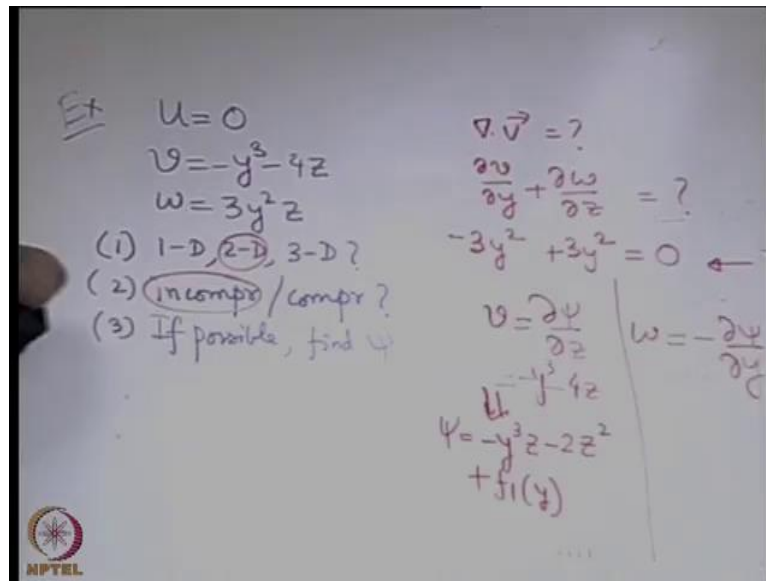 Ex u = 0
v = -y³ - 4z
w = 3y²z
(1) 1-D, 2-D, 3-D?
(2) incompr / compr?
(3) If possible, find ψ
∇.v⃗ = ?
∂v/∂y + ∂w/∂z = ?
-3y² + 3y² = 0 ←
v = ∂ψ/∂z
= -y³ - 4z
⇓
ψ = -y³z - 2z²
+ f1(y)
w = -∂ψ/∂y
NPTEL